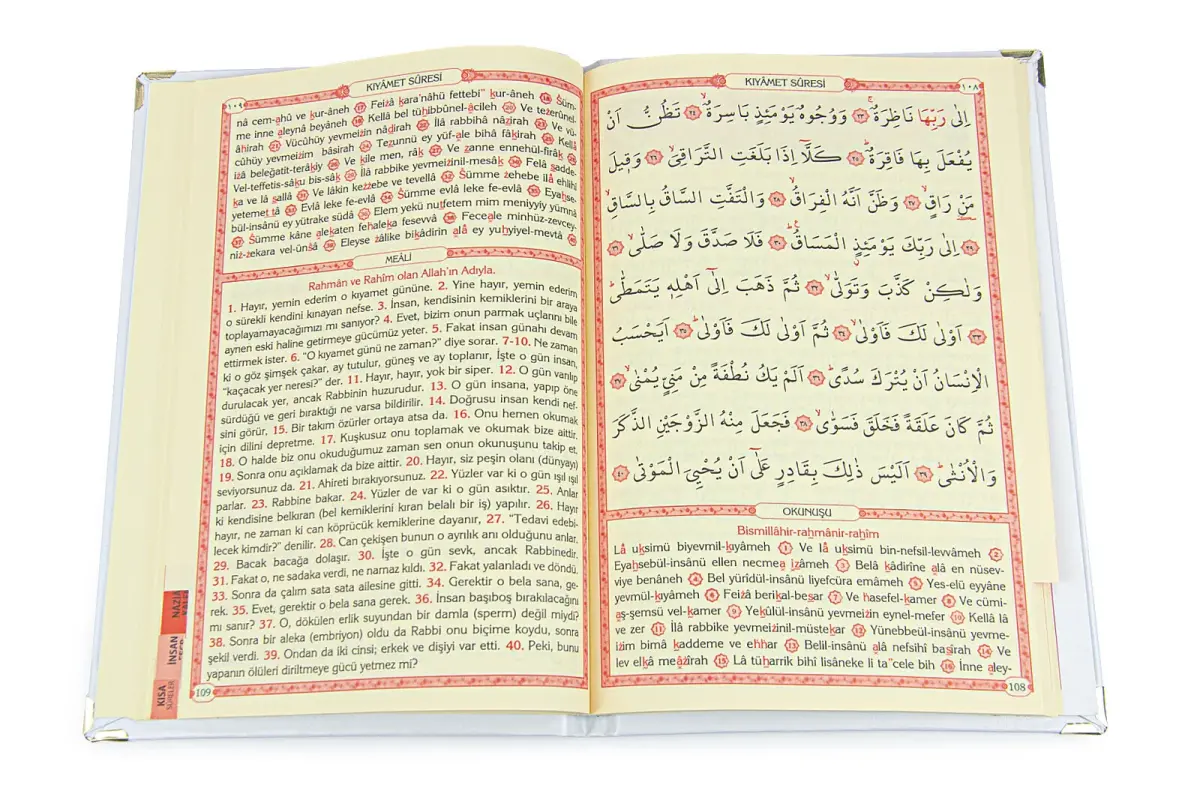 KIYÂMET SÛRESİ
١٠٨
اِلٰى رَبِّهَا نَاظِرَةٌۚ ﴿٢٣﴾ وَوُجُوهٌ يَوْمَئِذٍ بَاسِرَةٌۙ ﴿٢٤﴾ تَظُنُّ اَنْ
يُفْعَلَ بِهَا فَاقِرَةٌۜ ﴿٢٥﴾ كَلَّٓا اِذَا بَلَغَتِ التَّرَاقِيَۙ ﴿٢٦﴾ وَقٖيلَ
مَنْ رَاقٍۙ ﴿٢٧﴾ وَظَنَّ اَنَّهُ الْفِرَاقُۙ ﴿٢٨﴾ وَالْتَفَّتِ السَّاقُ بِالسَّاقِۙ
﴿٢٩﴾ اِلٰى رَبِّكَ يَوْمَئِذٍ الْمَسَاقُۜ ﴿٣٠﴾ فَلَا صَدَّقَ وَلَا صَلّٰىۙ ﴿٣١﴾
وَلٰكِنْ كَذَّبَ وَتَوَلّٰىۙ ﴿٣٢﴾ ثُمَّ ذَهَبَ اِلٰٓى اَهْلِهٖ يَتَمَطّٰىۜ
﴿٣٣﴾ اَوْلٰى لَكَ فَاَوْلٰىۙ ﴿٣٤﴾ ثُمَّ اَوْلٰى لَكَ فَاَوْلٰىۜ ﴿٣٥﴾ اَيَحْسَبُ
الْاِنْسَانُ اَنْ يُتْرَكَ سُدًىۜ ﴿٣٦﴾ اَلَمْ يَكُ نُطْفَةً مِنْ مَنِيٍّ يُمْنٰىۙ ﴿٣٧﴾
ثُمَّ كَانَ عَلَقَةً فَخَلَقَ فَسَوّٰىۙ ﴿٣٨﴾ فَجَعَلَ مِنْهُ الزَّوْجَيْنِ الذَّكَرَ
وَالْاُنْثٰىۜ ﴿٣٩﴾ اَلَيْسَ ذٰلِكَ بِقَادِرٍ عَلٰٓى اَنْ يُحْيِيَ الْمَوْتٰى ﴿٤٠﴾
OKUNUŞU
Bismillâhir-rahmânir-rahîm
Lâ uksimü biyevmil-kıyâmeh 1 Ve lâ uksimü bin-nefsil-levvâmeh 2
Eyahsebül-insânü ellen necmea ızâmeh 3 Belâ kâdirîne alâ en nüsev-
viye benâneh 4 Bel yürîdül-insânü liyefcüra emâmeh 5 Yes-elü eyyâne
yevmül-kıyâmeh 6 Feizâ berikal-besar 7 Ve hasefel-kamer 8 Ve cümi-
aş-şemsü vel-kamer 9 Yekûlül-insânü yevmeizin eynel-mefer 10 Kellâ lâ
ve zer 11 İlâ rabbike yevmeizinil-müstekar 12 Yünebbeül-insânü yevme-
izim bimâ kaddeme ve ehhar 13 Belil-insânü alâ nefsihî basîrah 14 Ve
lev elkâ meâzîrah 15 Lâ tüharrik bihî lisâneke li ta"cele bih 16 İnne aley-
108
KIYÂMET SÛRESİ
١٠٩
nâ cem-ahû ve kur-âneh 17 Feizâ kara'nâhü fettebi" kur-âneh 18 Süm-
me inne aleynâ beyâneh 19 Kellâ bel tühibbûnel-âcileh 20 Ve tezerûnel-
âhirah 21 Vücûhüy yevmeizin nâdirah 22 İlâ rabbihâ nâzirah 23 Ve vü-
cûhüy yevmeizim bâsirah 24 Tezunnü ey yüf-ale bihâ fâkirah 25 Kellâ
izâ beleğatit-terâkıy 26 Ve kîle men, râk 27 Ve zanne ennehül-firâk 28
Vel-teffetis-sâku bis-sâk 29 İlâ rabbike yevmeizinil-mesâk 30 Felâ sadde-
ka ve lâ sallâ 31 Ve lâkin kezzebe ve tevellâ 32 Sümme zehebe ilâ ehlihî
yetemettâ 33 Evlâ leke fe-evlâ 34 Sümme evlâ leke fe-evlâ 35 Eyahse-
bül-insânü ey yütrake südâ 36 Elem yekü nutfetem mim meniyyiy yümnâ
37 Sümme kâne alekaten fehaleka fesevvâ 38 Feceale minhüz-zevcey-
niz-zekara vel-ünsâ 39 Eleyse zâlike bikâdirin alâ ey yuhyiyel-mevtâ 40
MEÂLİ
Rahmân ve Rahîm olan Allah'ın Adıyla.
1. Hayır, yemin ederim o kıyamet gününe. 2. Yine hayır, yemin ederim
o sürekli kendini kınayan nefse. 3. İnsan, kendisinin kemiklerini bir araya
toplayamayacağımızı mı sanıyor? 4. Evet, bizim onun parmak uçlarını bile
aynen eski haline getirmeye gücümüz yeter. 5. Fakat insan günahı devam
ettirmek ister. 6. "O kıyamet günü ne zaman?" diye sorar. 7-10. Ne zaman
ki o göz şimşek çakar, ay tutulur, güneş ve ay toplanır, İşte o gün insan,
"kaçacak yer neresi?" der. 11. Hayır, hayır, yok bir siper. 12. O gün varılıp
durulacak yer, ancak Rabbinin huzurudur. 13. O gün insana, yapıp öne
sürdüğü ve geri bıraktığı ne varsa bildirilir. 14. Doğrusu insan kendi nef-
sini görür, 15. Bir takım özürler ortaya atsa da. 16. Onu hemen okumak
için dilini depretme. 17. Kuşkusuz onu toplamak ve okumak bize aittir.
18. O halde biz onu okuduğumuz zaman sen onun okunuşunu takip et,
19. Sonra onu açıklamak da bize aittir. 20. Hayır, siz peşin olanı (dünyayı)
seviyorsunuz da. 21. Ahireti bırakıyorsunuz. 22. Yüzler var ki o gün ışıl ışıl
parlar. 23. Rabbine bakar. 24. Yüzler de var ki o gün asıktır. 25. Anlar
ki kendisine belkıran (bel kemiklerini kıran belalı bir iş) yapılır. 26. Hayır
hayır, ne zaman ki can köprücük kemiklerine dayanır, 27. "Tedavi edebi-
lecek kimdir?" denilir. 28. Can çekişen bunun o ayrılık anı olduğunu anlar.
29. Bacak bacağa dolaşır. 30. İşte o gün sevk, ancak Rabbinedir.
31. Fakat o, ne sadaka verdi, ne namaz kıldı. 32. Fakat yalanladı ve döndü.
33. Sonra da çalım sata sata ailesine gitti. 34. Gerektir o bela sana, ge-
rek. 35. Evet, gerektir o bela sana gerek. 36. İnsan başıboş bırakılacağını
mı sanır? 37. O, dökülen erlik suyundan bir damla (sperm) değil miydi?
38. Sonra bir aleka (embriyon) oldu da Rabbi onu biçime koydu, sonra
şekil verdi. 39. Ondan da iki cinsi; erkek ve dişiyi var etti. 40. Peki, bunu
yapanın ölüleri diriltmeye gücü yetmez mi?
109
İNSAN
KISA
SÛRELER